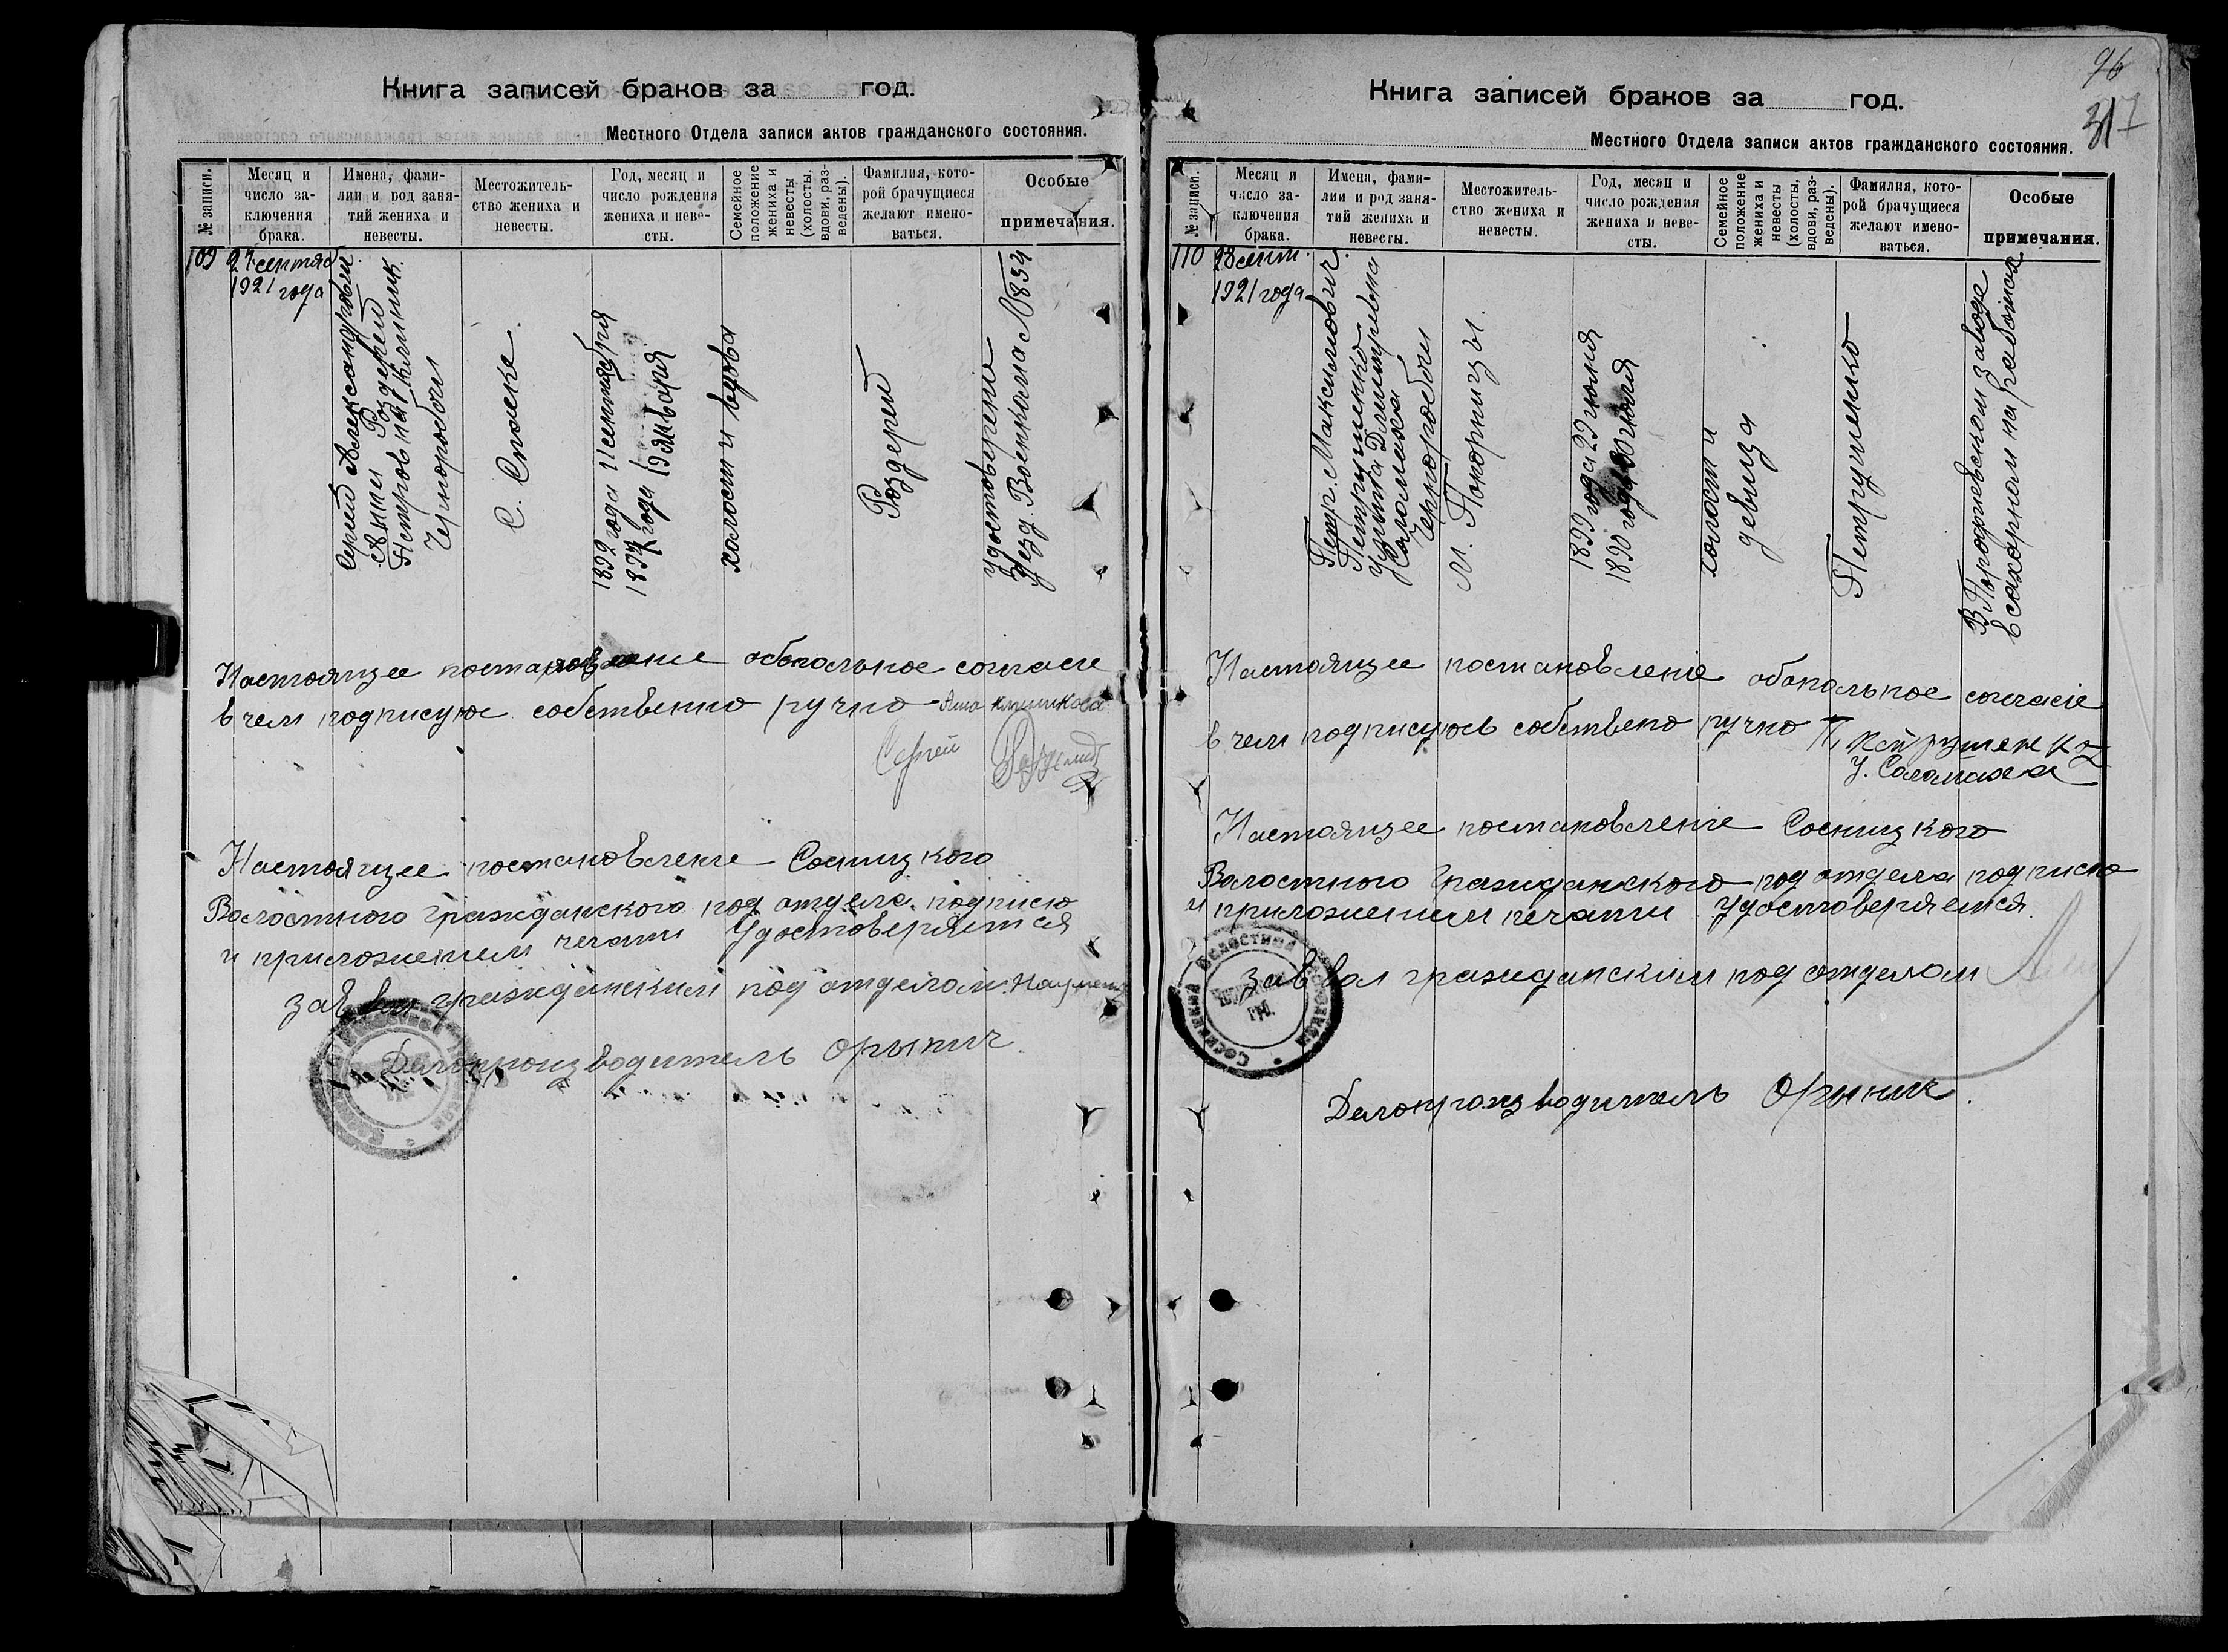 Книга записей браков за год.
Местного Отдела записи актов гражданского состояния.
№ записи.
Месяц и
число за-
ключения
брака.
Имена, фами-
лии и род заня-
тий жениха и
невесты.
Местожитель-
ство жениха и
невесты.
Год, месяц и
число рождения
жениха и неве-
сты.
Семейное
положение
жениха и
невесты
(холосты,
вдови, раз-
ведены).
Фамилия, кото-
рой брачущиеся
желают имено-
ваться.
Особые
примечания.
109
27 сентяб.
1921 года
Сергей Александровен
Анна
Чернорабочи
С. Спаске
1899 года 11 сентября
года 19 января
холост и вдова
удостоверение
Уезд. Военкома № 834
Настоящее постановление обопольное согласие
в чем подписуюс собственно ручно
Сергей
Настоящее постановление Сосницкого
Волостного Гражданского под отдела подписю
и приложением печати Удостоверяется
Зав вол гражданским под отделом
Делопроизводитель
96
317
Книга записей браков за год.
Местного Отдела записи актов гражданского состояния.
№ записи.
Месяц и
число за-
ключения
брака.
Имена, фами-
лии и род заня-
тий жениха и
невесты.
Местожитель-
ство жениха и
невесты.
Год, месяц и
число рождения
жениха и неве-
сты.
Семейное
положение
жениха и
невесты
(холосты,
вдови, раз-
ведены).
Фамилия, кото-
рой брачущиеся
желают имено-
ваться.
Особые
примечания.
110
28 сент.
1921 года
Петр Максимович
Петрушенко
Дмитревна
Саламаха
Чернорабочи
М. Покорщицы.
1899 года 29 июня
1890 года
холост и
девица
Петрушенко
В заводе
в сахарном на работах
Настоящее постановленіе обопольное согласіе
в чем подписуюсь собствено ручно П. Петрушенко
У. Саламаха
Настоящее постановленіе Сосницкого
Волостного Гражданского под отдела подписю
и приложением печати Удостоверяется.
Зав вол гражданским под отделом
Делопроизводитель